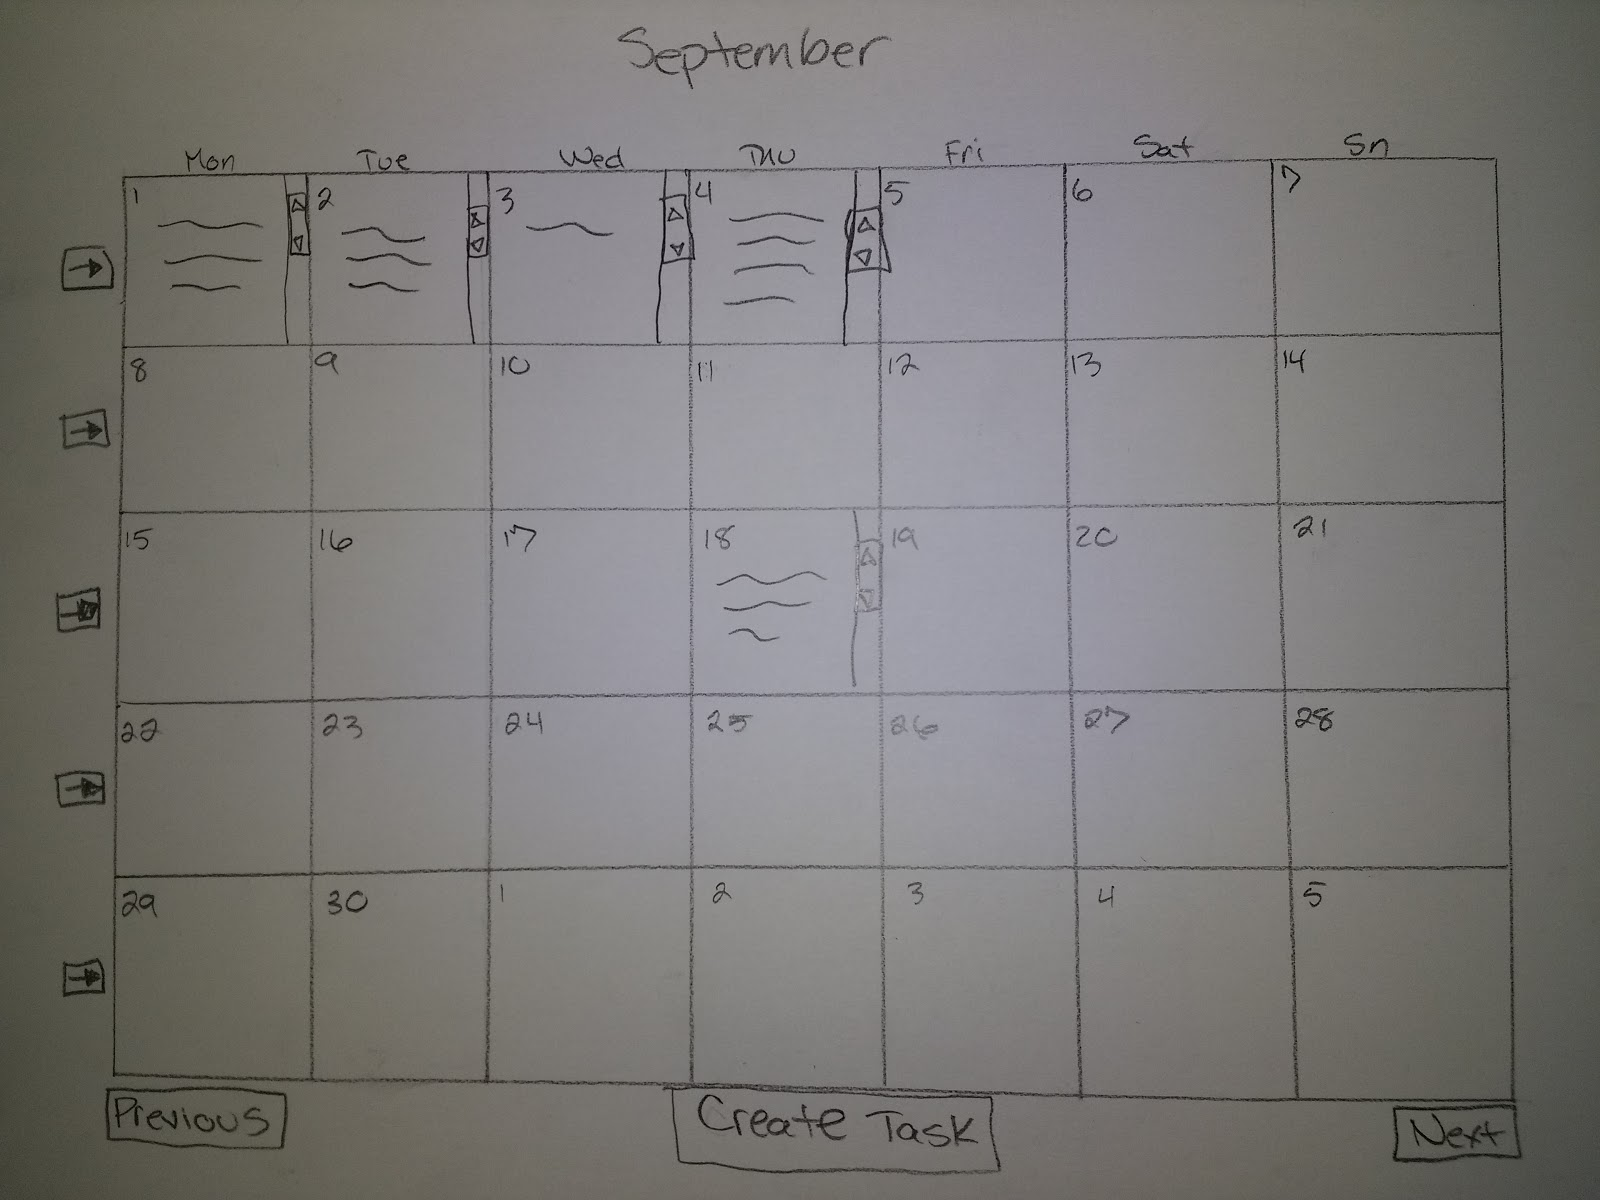 September
Mon Tue Wed Thu Fri Sat Sn
1 2 3 4 5 6 7
8 9 10 11 12 13 14
15 16 17 18 19 20 21
22 23 24 25 26 27 28
29 30 1 2 3 4 5
Previous Create Task Next